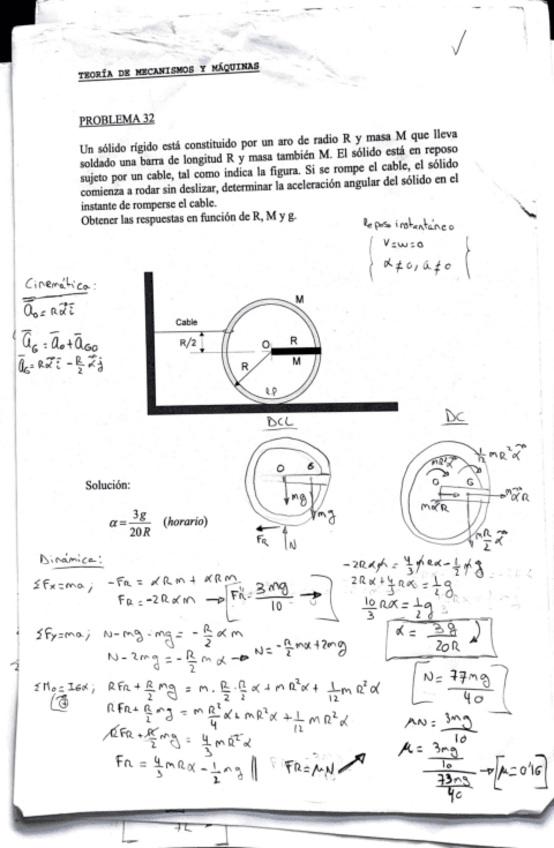 TEORÍA DE MECANISMOS Y MÁQUINAS
PROBLEMA 32
Un sólido rígido está constituido por un aro de radio R y masa M que lleva
soldado una barra de longitud R y masa también M. El sólido está en reposo
sujeto por un cable, tal como indica la figura. Si se rompe el cable, el sólido
comienza a rodar sin deslizar, determinar la aceleración angular del sólido en el
instante de romperse el cable.
Obtener las respuestas en función de R, M y g.
Reposo instantáneo
V=ω=0
α≠0, a≠0
Cinemática:
a̅₀ = Rα i̅
a̅G = a̅₀ + a̅GO
a̅G = Rα i̅ - R/2 α j̅
Cable
R/2
M
O
R
M
R
DCL
DC
O G
mg
mg
FR
N
mR²α
1/12 mR²α
O G
mαR
mαR
m R/2 α
Solución:
α = 3g/20R (horario)
Dinámica:
ΣFx=ma; -FR = αRm + αRM
FR = -2Rαm → FR = 3mg/10
ΣFy=ma; N-mg-mg = -R/2 αm
N-2mg = -R/2 mα → N = -R/2 mα+2mg
ΣMo=IGα; RFR + R/2 mg = m·R/2·R/2 α + mR²α + 1/12 mR²α
RFR + R/2 mg = m R²/4 α + mR²α + 1/12 mR²α
RFR + R/2 mg = 4/3 mR²α
FR = 4/3 mRα - 1/2 mg
FR=μN
-2Rαm = 4/3 mRα - 1/2 mg
2Rα + 4/3 Rα = 1/2 g
10/3 Rα = 1/2 g
α = 3g/20R
N = 77mg/40
μN = 3mg/10
μ = 3mg/10 / 73mg/40 → μ=0'16